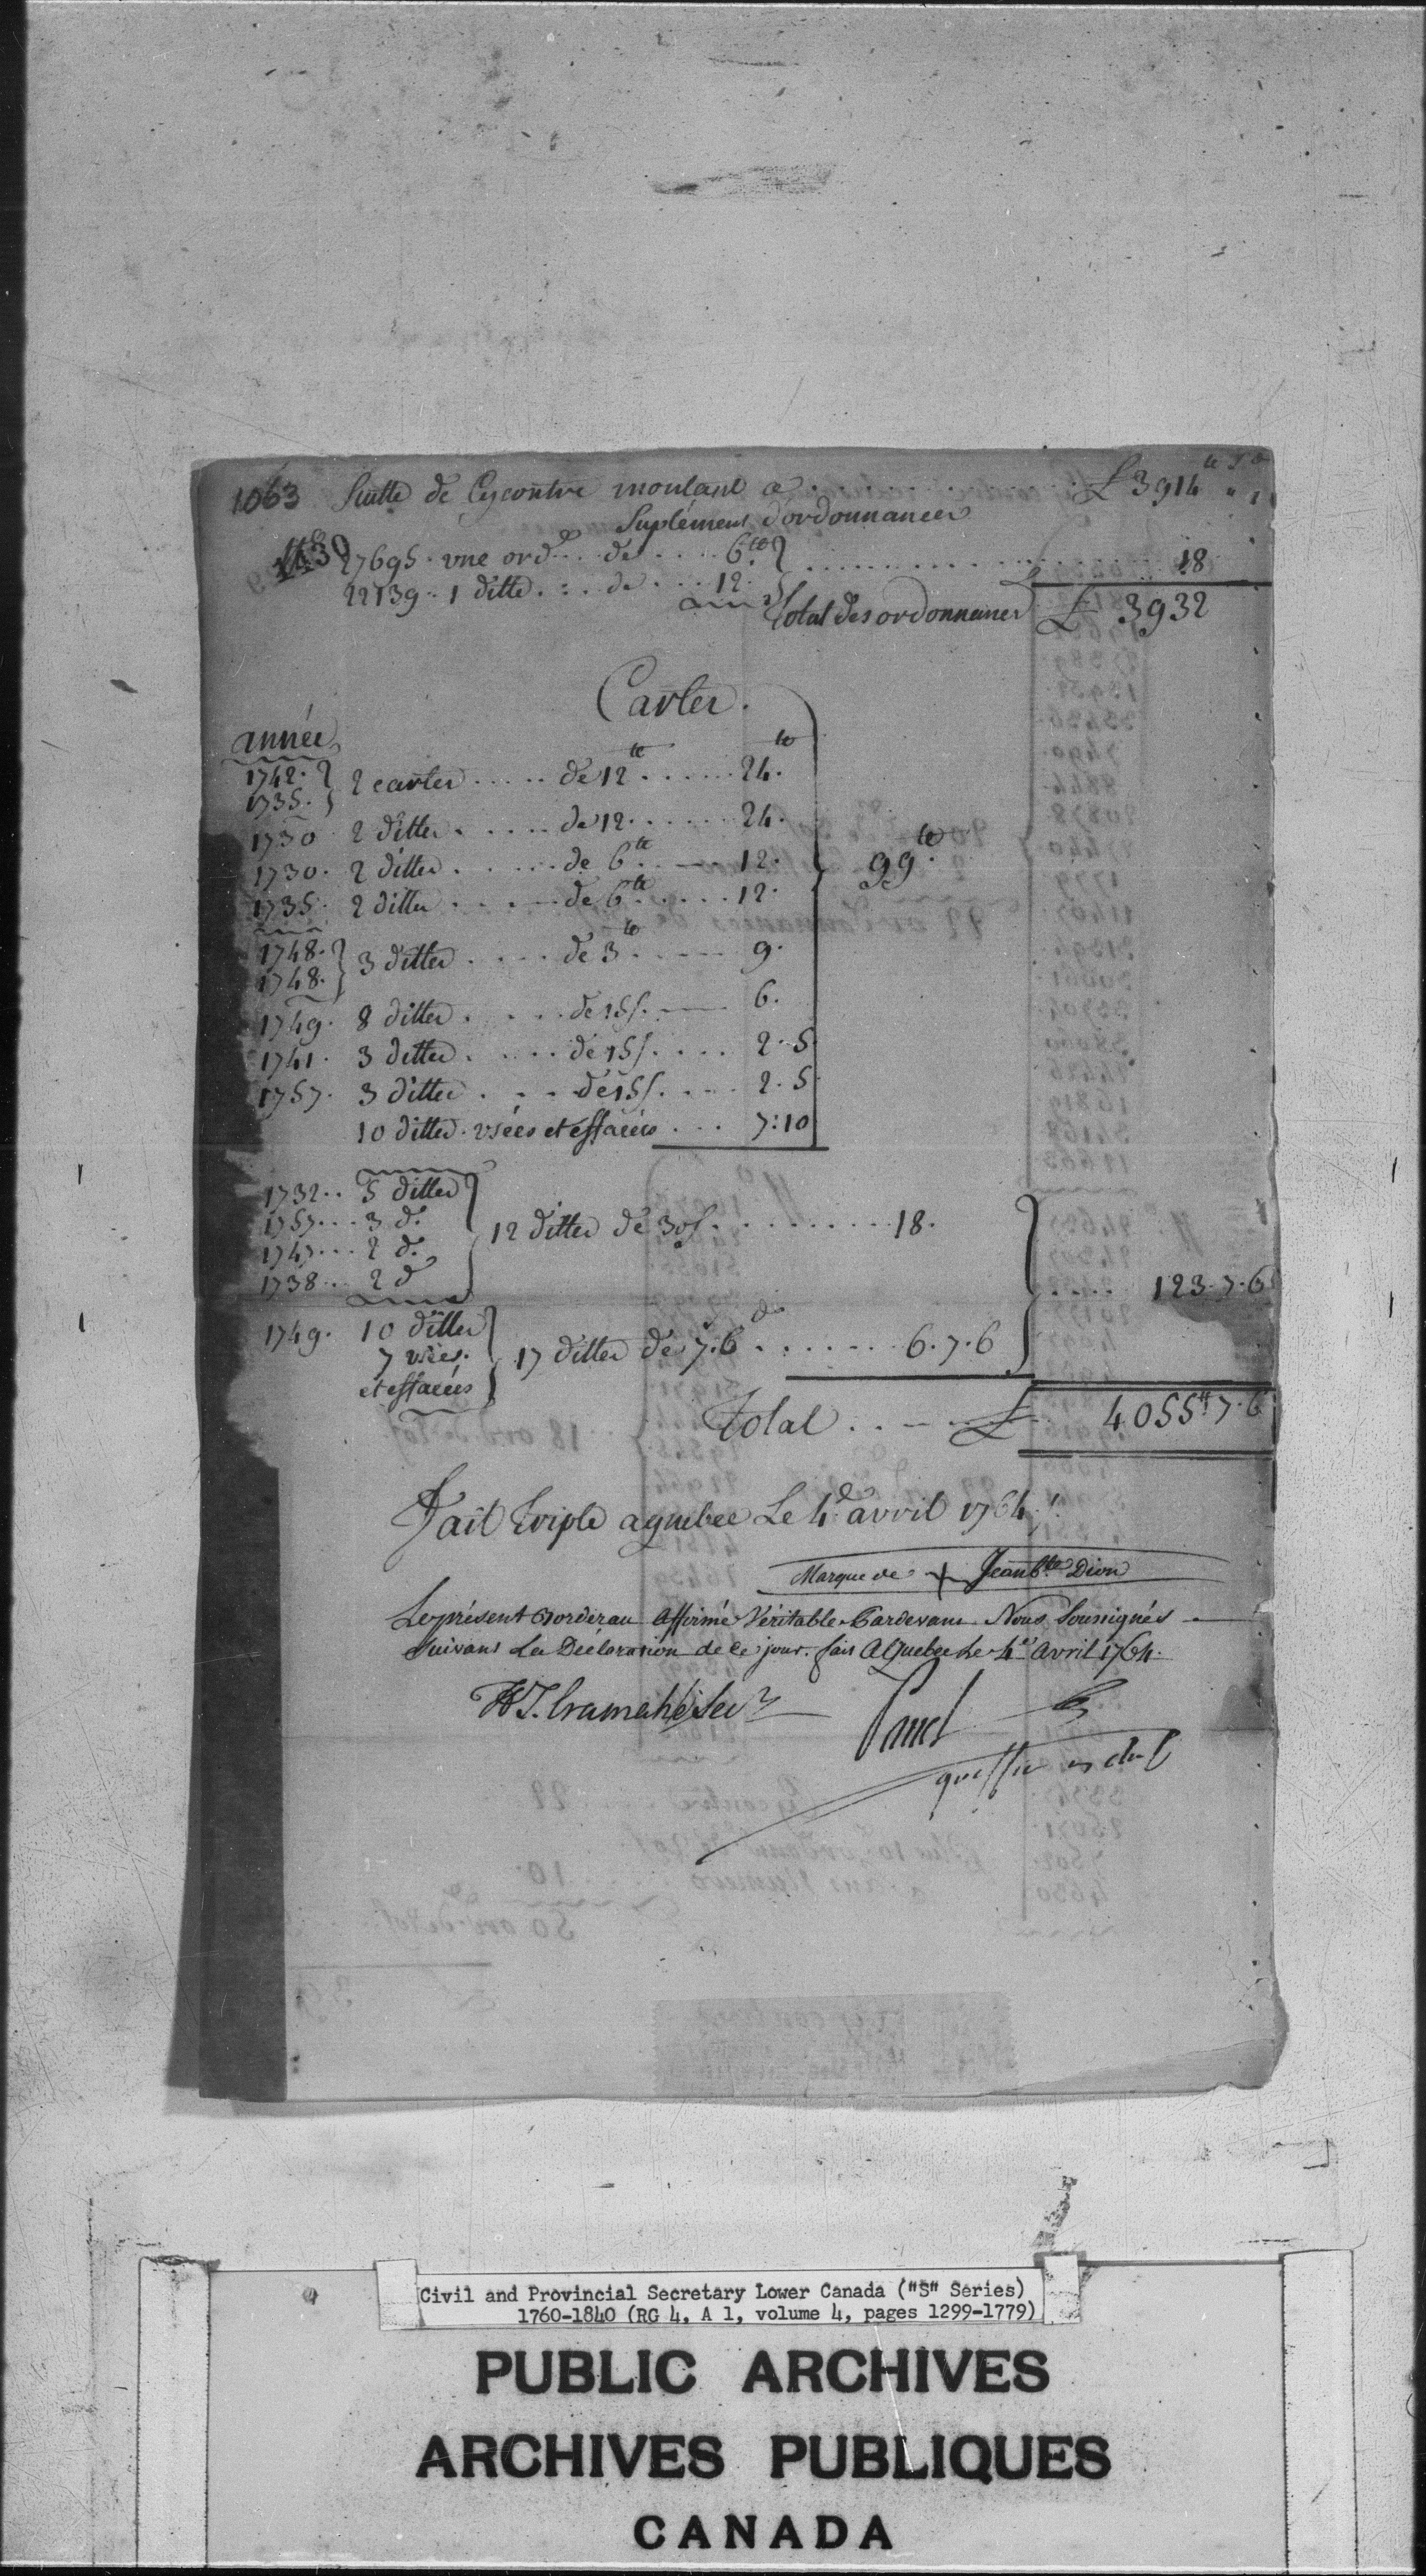 1063 Suitte de Cy contre montant a . . . . . . . . £ 3914 " "
Suplément d'ordonnances
1430
27695 . une ord^ce . . de . . . . 6^tt } . . . . . . . . . . . . 18
22139 . . 1 ditto . : . de . . . 12.
Total des ordonnances £ 3932
Cartes.
année
1742. } 2 cartes . . . . . de 12^tt . . . . . . 24^tt.
1735. }
1730 2 dittes . . . . . de 12 . . . . . . . 24.
1730. 2 dittes . . . . . . de 6^tt . . . . . 12. } 99^tt.
1735. 2 dittes . . . . . de 6^tt . . . . . 12.
1748. } 3 dittes . . . . . de 3^tt . . . . . 9.
1748. }
1749. 8 dittes . . . . . de 15s. . . . . 6.
1741. 3 dittes . . . . . de 15s. . . . . 2. 5.
1757. 3 dittes . . . . de 15s. . . . . 2. 5.
10 dittes. usées et effacées . . . 7:10
1732 . . 5 dittes
1757 . . . 3 d^o.
12 dittes de 30s. . . . . . . . . . 18.
1747 . . . 2 d^o.
1738 . . . 2 d^o
. . . . 123. 7. 6
1749. 10 dittes
7 usées.
17 dittes de 7. 6^d . . . . . . . 6. 7. 6
et effacées
Total . . . . £ 4055^tt 7. 6
Fait triple a quebec Le 4^e avril 1764 !
Marque de + Jean B^te Dion
Le présent Borderau Affirmé Véritable Pardevant Nous Soussignés
Suivant La Déclaration de Ce jour. fait A Quebec Le 4^e Avril 1764.
H T. Cramahé Sec^y
Panet
Civil and Provincial Secretary Lower Canada ("S" Series)
1760-1840 (RG 4, A 1, volume 4, pages 1299-1779)
PUBLIC ARCHIVES
ARCHIVES PUBLIQUES
CANADA